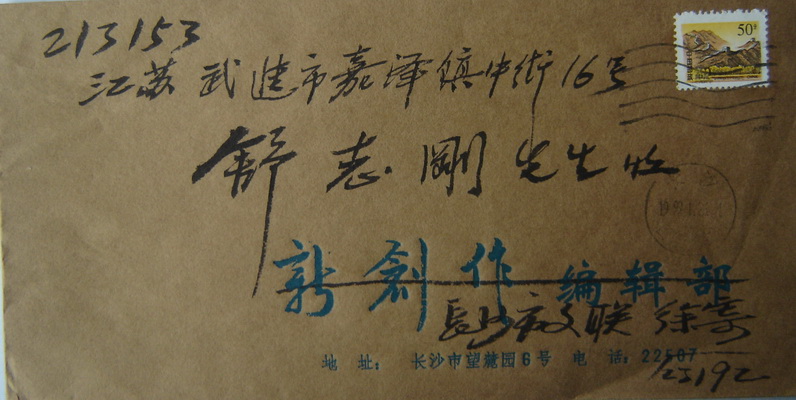 213153
50分
江苏武进市嘉泽镇中街16号
舒志刚先生收
新创作 编辑部
长沙市文联 徐
地 址: 长沙市望麓园6号 电 话: 22507
25192